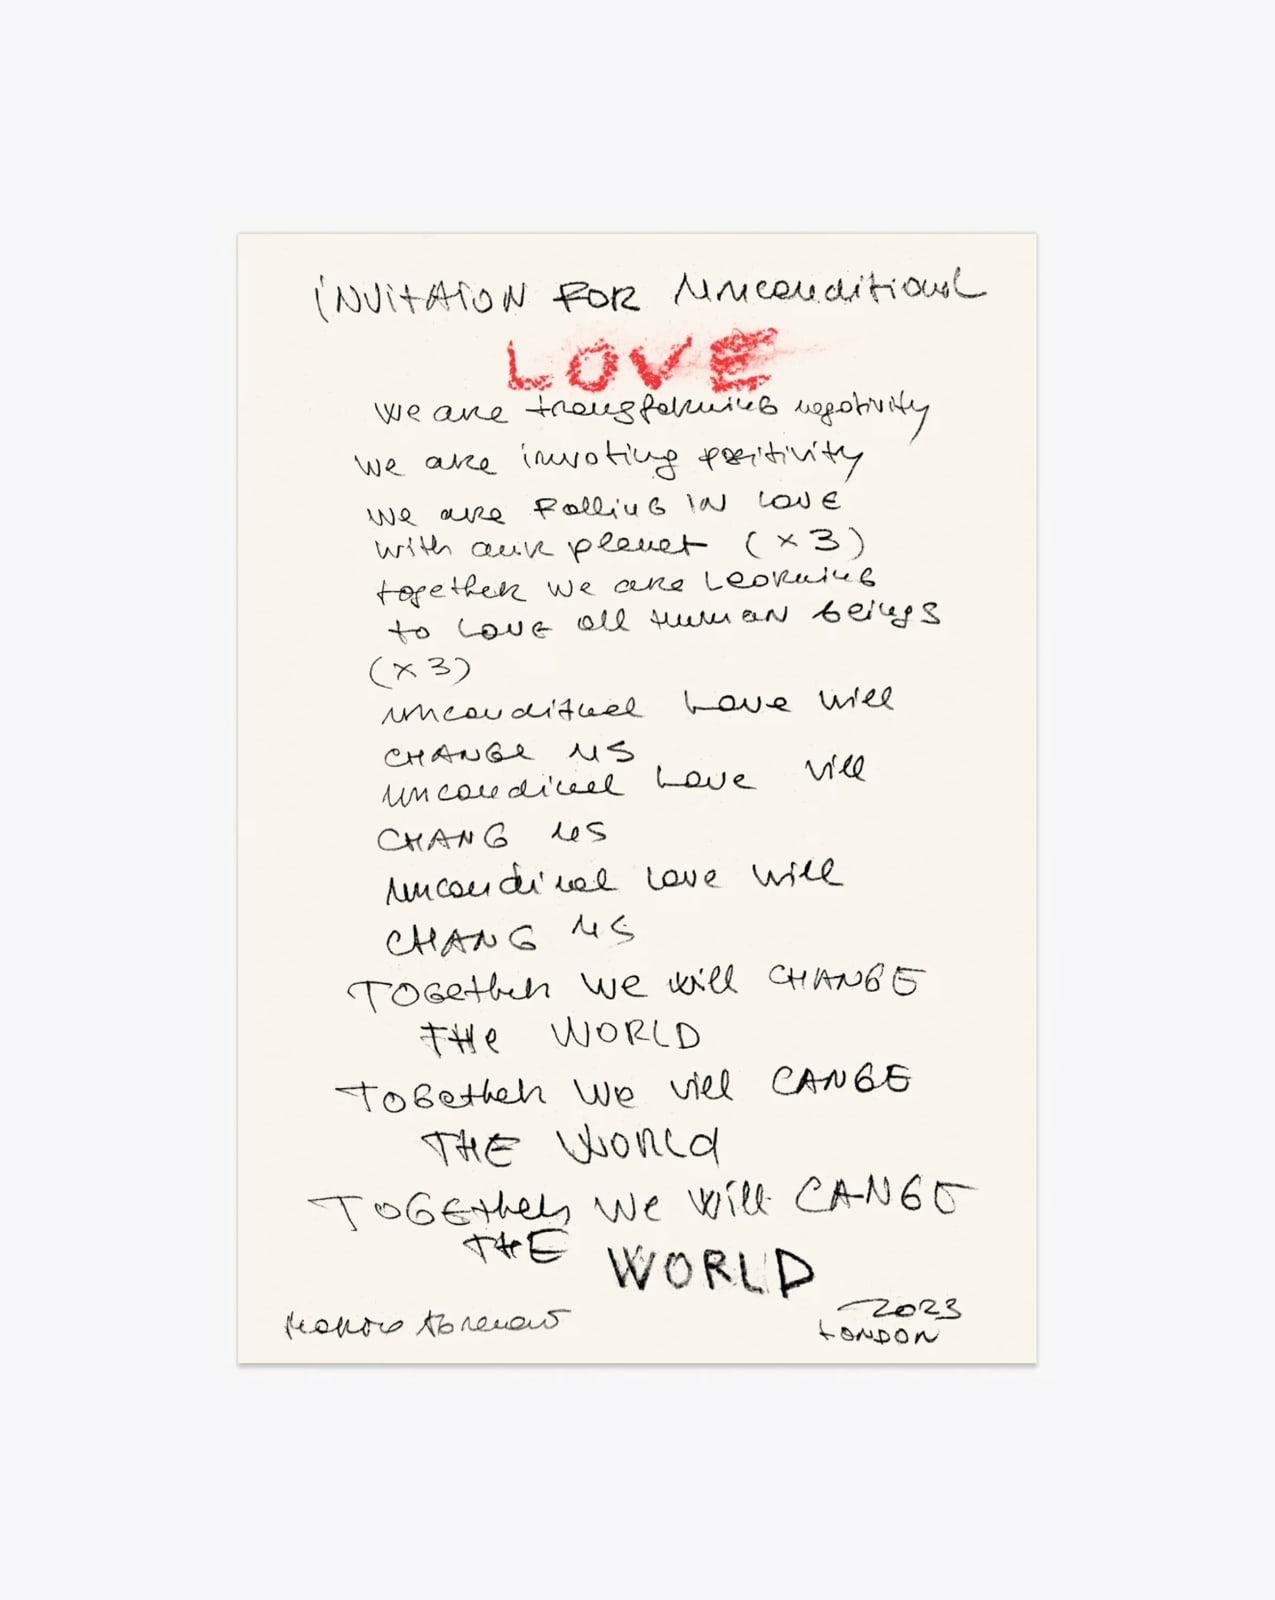 iNVitAiON FOR Unconditional
LOVE
We are transforming negativity
We are invoting positivity
We are Falling IN LOVE
With our planet (x3)
together we are Learning
to LOVE all human beings
(x3)
unconditnel Love will
CHANGe US
uncondinel Love vill
CHANG US
uncondinal Love will
CHANG US
TOGether We will CHANGE
tHe WORLD
TOGether We vill CANGE
THE WORLd
TOGEther We Will CANGE
THE WORLD
2023
LONDON